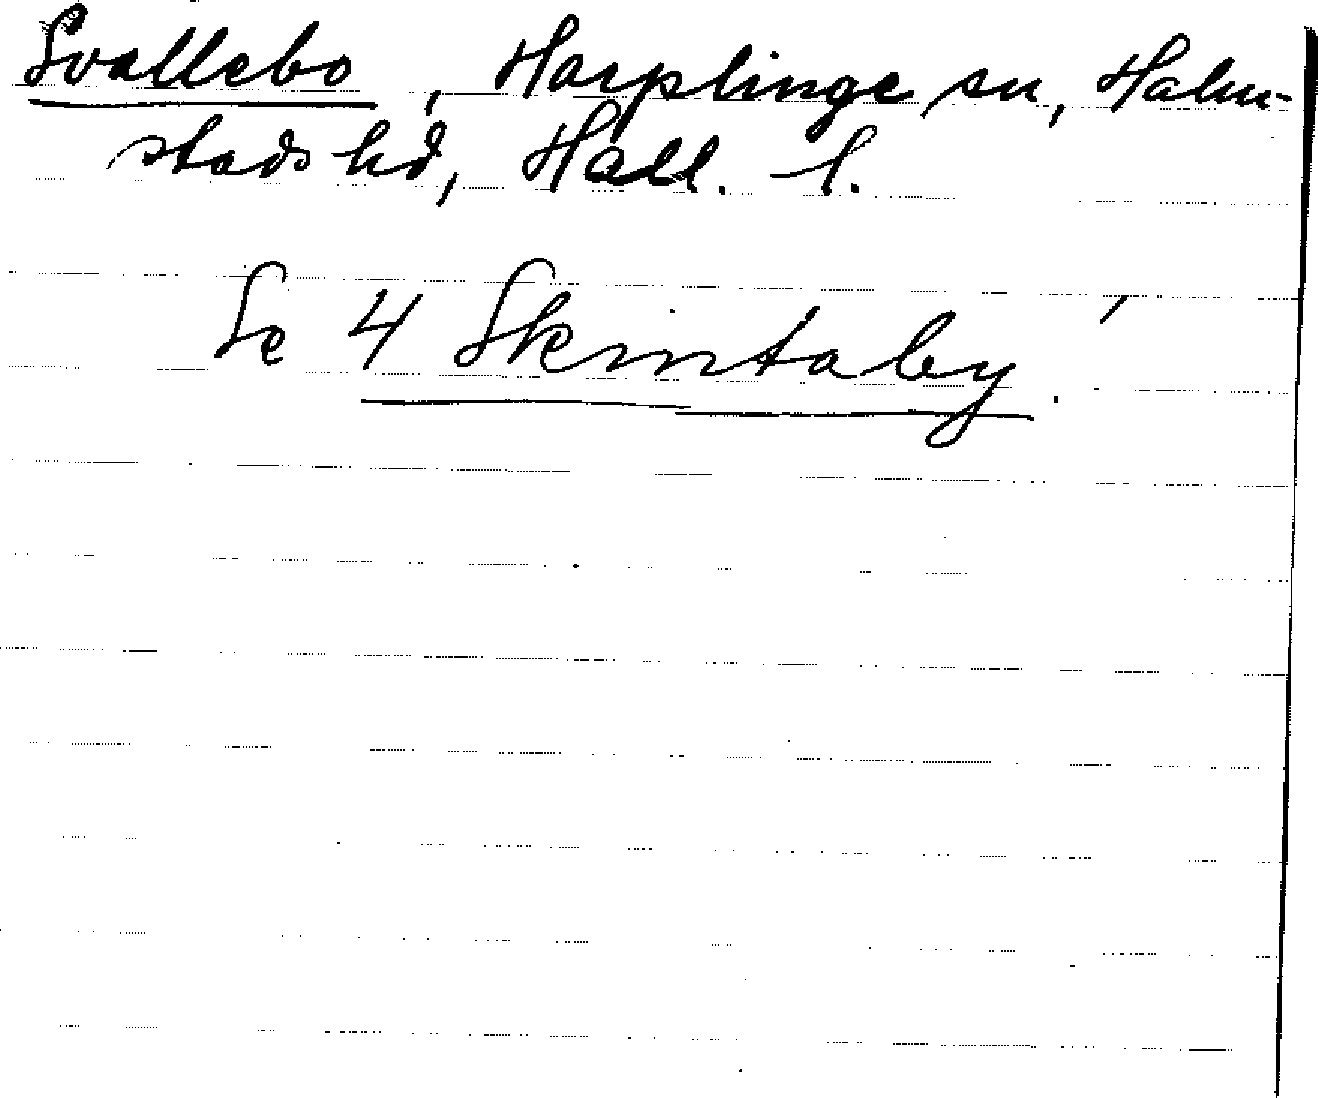 Svallebo, Harplinge sn, Halm-
stads hd, Hall. l.
Se 4 Skintaby.